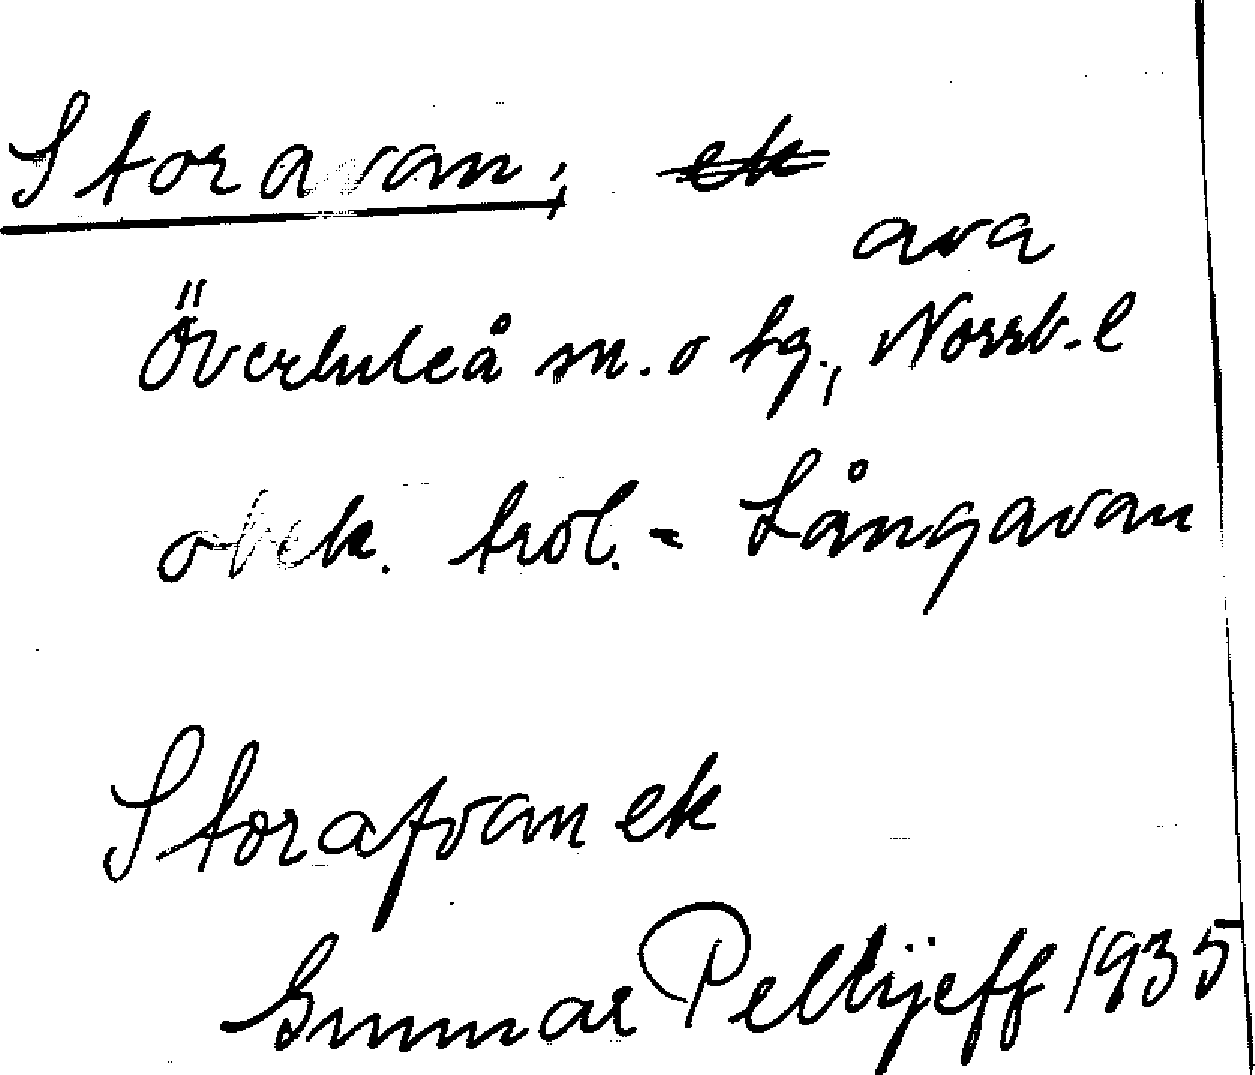 Storavan; ek
ava
Överluleå sn. o tg., Norrb. l
obek. trol. = Långavan
Storafvan ek
Gunnar Pellijeff 1935